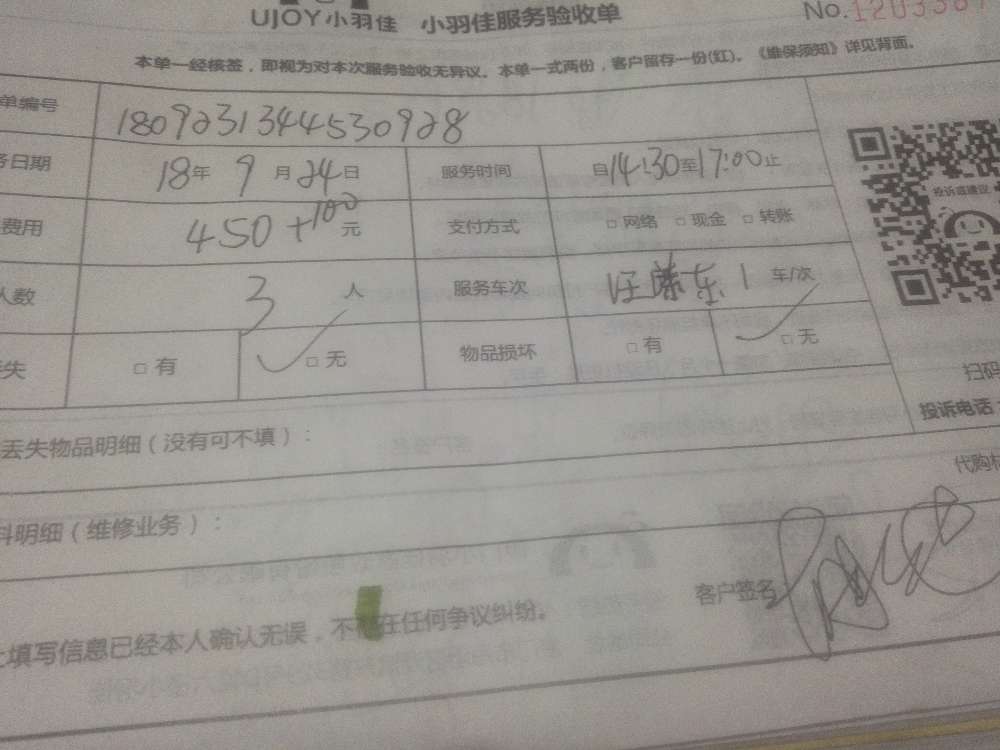 UJOY小羽佳 小羽佳服务验收单
No.
本单一经核签，即视为对本次服务验收无异议。本单一式两份，客户留存一份(红)。《维保须知》详见背面。
单编号 1809231344530928
务日期 18年 9月 24日 服务时间 自14:30至17:00止
费用 450+100元 支付方式 □ 网络 □ 现金 □ 转账
人数 3 人 服务车次 1 车/次
失 □ 有 □ 无 物品损坏 □ 有 □ 无
投诉或建议
扫码
投诉电话
丢失物品明细（没有可不填）：
代购材
料明细（维修业务）：
客户签名
上填写信息已经本人确认无误，不 在任何争议纠纷。